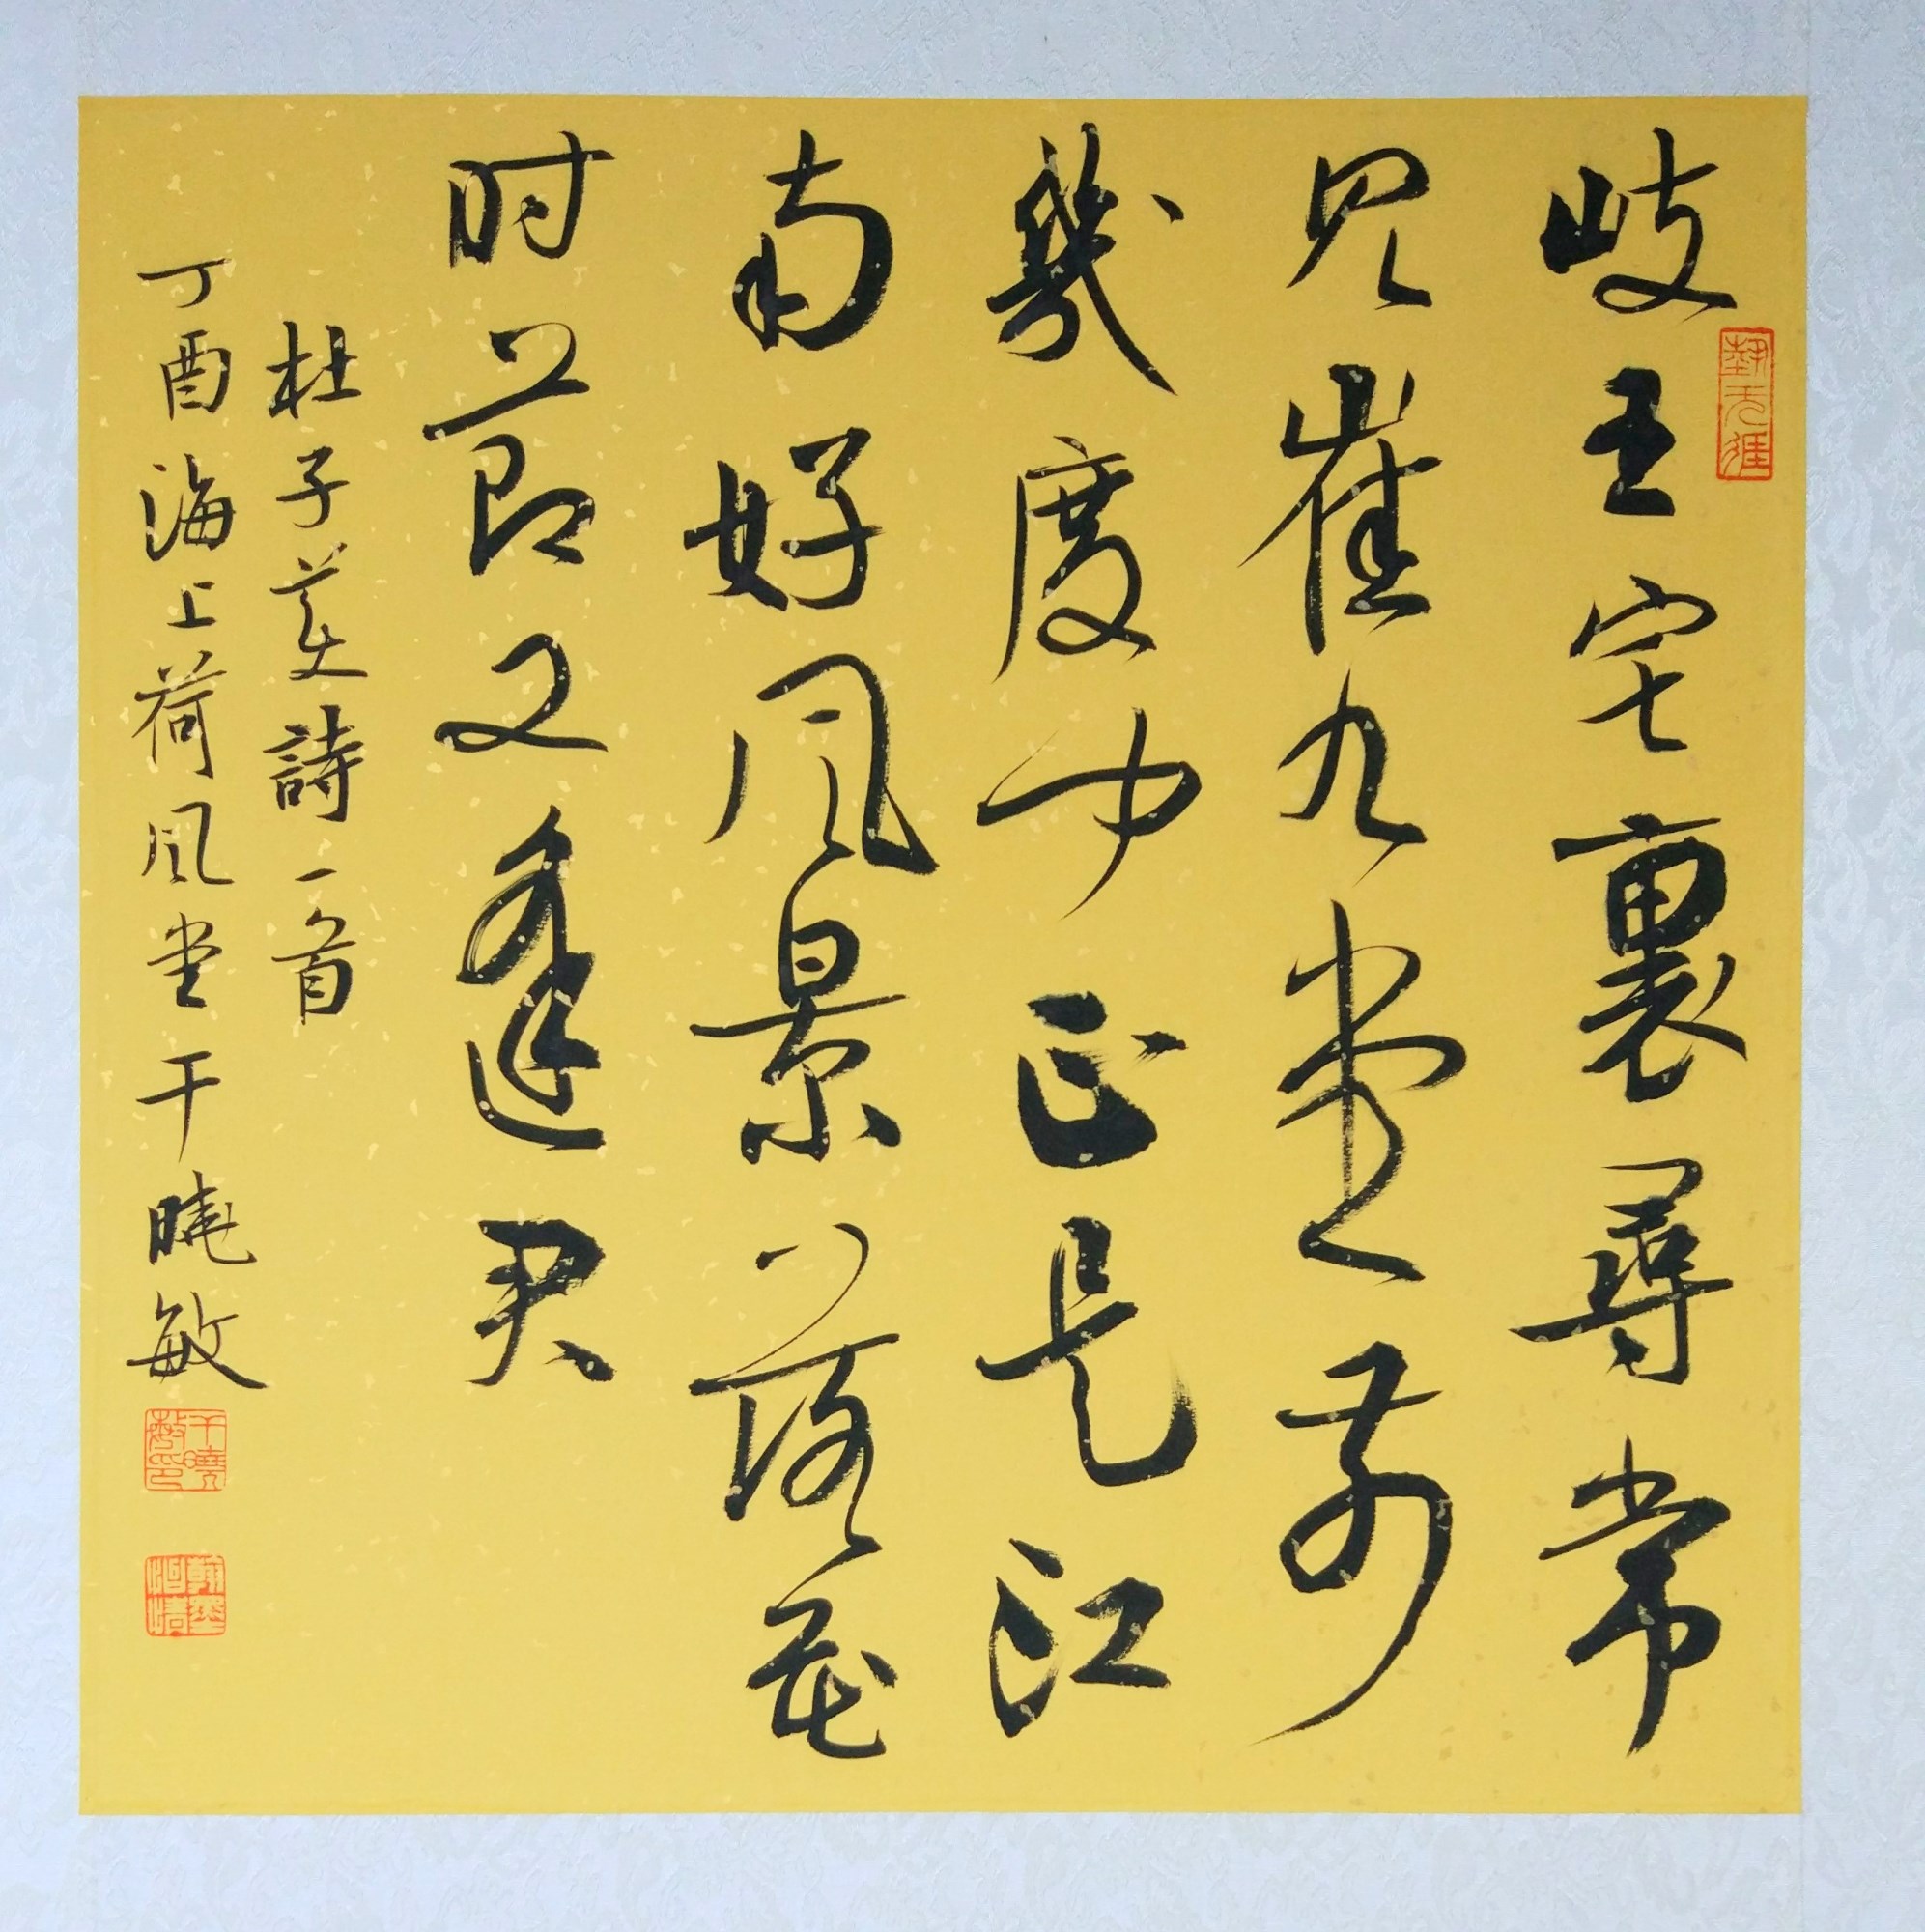 岐王宅裏尋常
見崔九堂前
幾度中正是江
南好風景落花
时節又逢君
杜子美詩一首
丁酉海上荷風堂干曉敏
干曉敏印